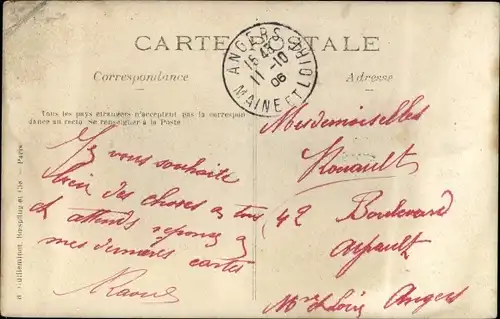 CARTE POSTALE
ANGERS
15 45
11 - 10
06
MAINE ET LOIRE
Correspondance
Adresse
Tous les pays étrangers n'acceptent pas la correspon
dance au recto. Se renseigner à la Poste
Je vous souhaite
bien des choses
et attends réponse à
mes dernières cartes
Raoul
Mesdemoiselles
Rouault
42 Boulevard
Arpault
Angers
Mne et Loire
Guilleminot, Bœspflug et Cie — Paris